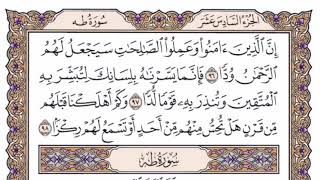 الجزء السادس عشر
سورة طه
إِنَّ ٱلَّذِينَ ءَامَنُوا۟ وَعَمِلُوا۟ ٱلصَّٰلِحَٰتِ سَيَجْعَلُ لَهُمُ
ٱلرَّحْمَٰنُ وُدًّا ٩٦ فَإِنَّمَا يَسَّرْنَٰهُ بِلِسَانِكَ لِتُبَشِّرَ بِهِ
ٱلْمُتَّقِينَ وَتُنذِرَ بِهِۦ قَوْمًا لُّدًّا ٩٧ وَكَمْ أَهْلَكْنَا قَبْلَهُم
مِّن قَرْنٍ هَلْ تُحِسُّ مِنْهُم مِّنْ أَحَدٍ أَوْ تَسْمَعُ لَهُمْ رِكْزًۢا ٩٨
سورة طه